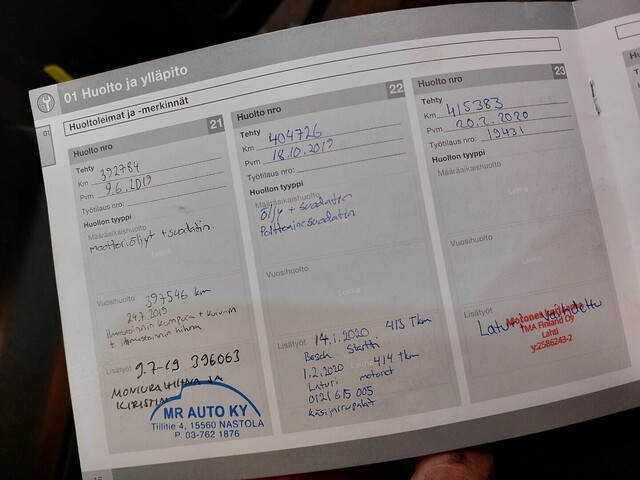 01 Huolto ja ylläpito
Huoltoleimat ja -merkinnät
01
Huolto nro 21
Tehty
Km 392784
Pvm 9.6.2019
Työtilaus nro:
Huollon tyyppi
Määräaikaishuolto
moottoriöljyt + suodatin.
Leima
Vuosihuolto
397546 km
24.7.2019
Ilmastoinnin kompura + kuivain
+ ilmastoinnin hihna
Lisätyöt 9.7-19 396063
MONIURAHIHNA JA
KIRISTIN
MR AUTO KY
Tiilitie 4, 15560 NASTOLA
P. 03-762 1876
Huolto nro 22
Tehty
Km 404726
Pvm 18.10.2019
Työtilaus nro:
Huollon tyyppi
Määräaikaishuolto
Öljy + suodatin
Polttoainesuodatin
Vuosihuolto
Leima
Lisätyöt 14.1.2020 413 Tkm
Bosch Startti
1.2.2020 414 tkm
Laturi motonet
0121 615 005
käsijarrupalat
Huolto nro 23
Tehty
Km 415383
Pvm 20.2.2020
Työtilaus nro: 19431
Huollon tyyppi
Määräaikaishuolto
Leima
Vuosihuolto
Leima
Lisätyöt
Laturi vaihdettu
TMA Finland Oy
Lahti
y:2586243-2